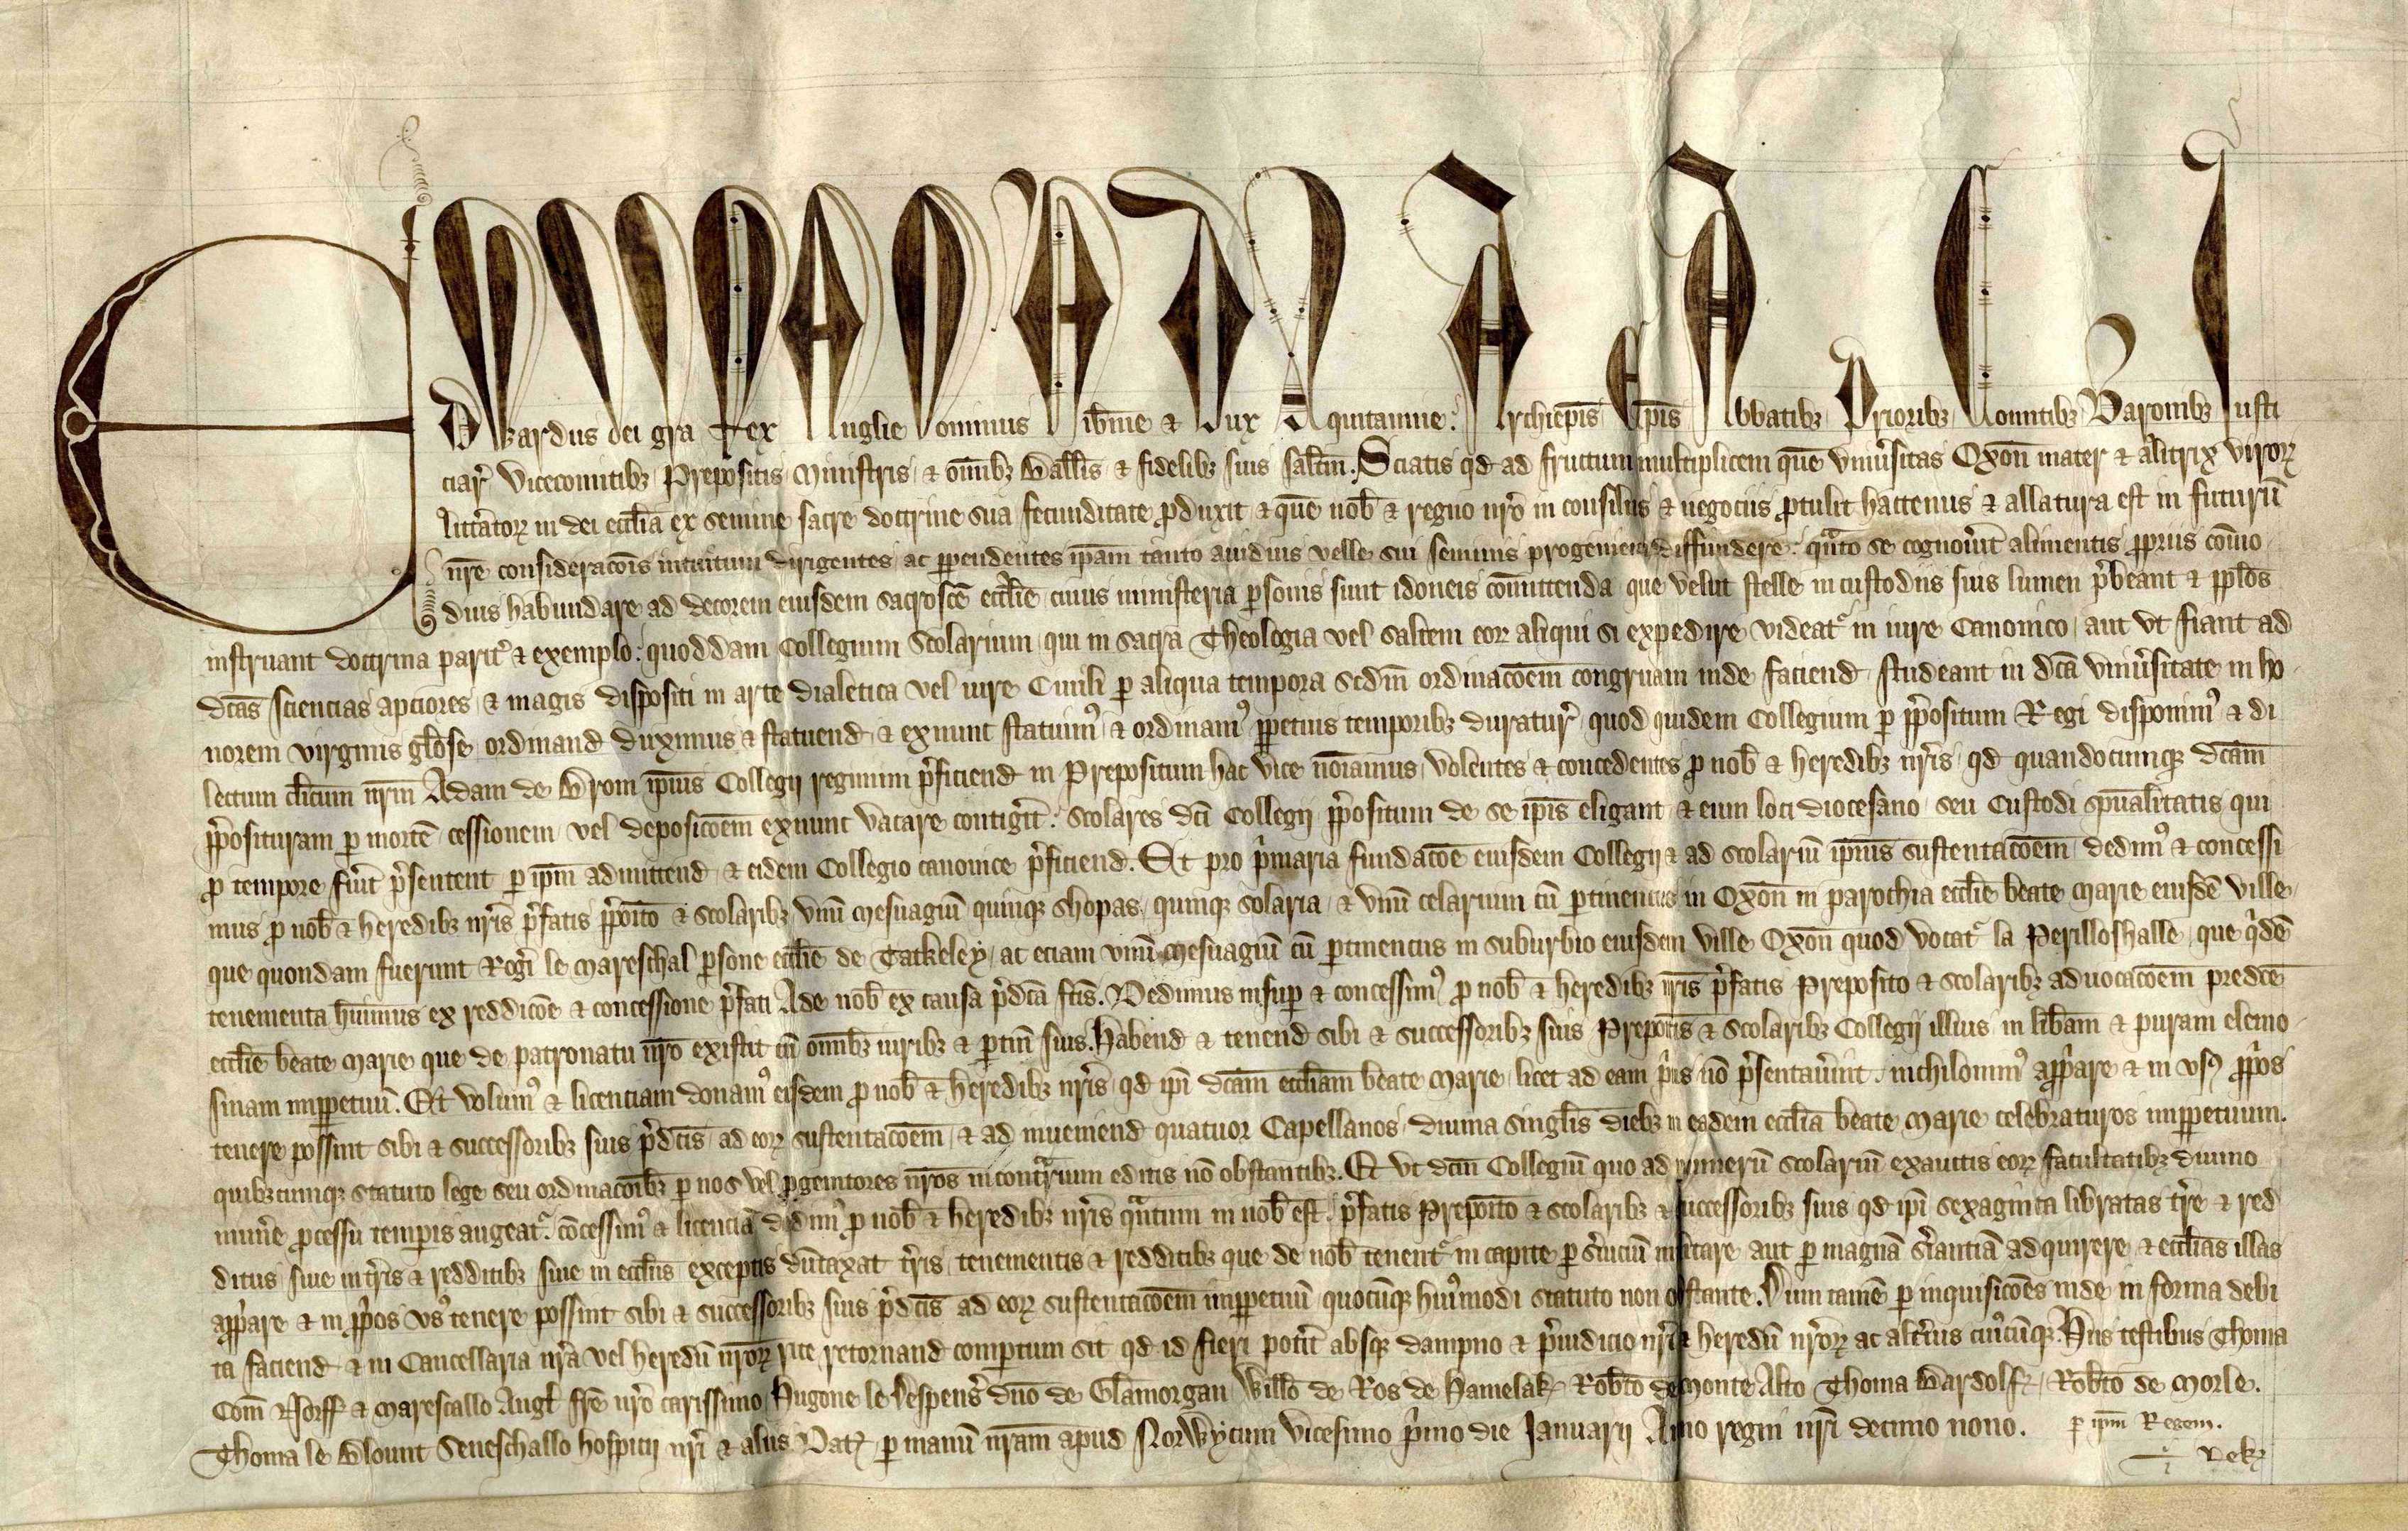 Edwardus dei gr̄a Rex Anglie Dominus Hib̄nie & Dux Aquitannie: Archiep̄is Ep̄is Abbatibꝫ Prioribꝫ Comitibꝫ Baronibꝫ Justi
ciar̄ Vicecomitibꝫ Prepositis Ministris & om̄ibꝫ Ball̄is & fidelibꝫ suis sal̄tm. Sciatis qd ad fructum multiplicem quē Vniu̓sitas Oxon̄ mater & al̓trix viroꝝ
litt̓atoꝝ in dei eccl̄ia ex semine sacre doctrine sua fecunditate ꝓduxit & quē nob̄ & regno nr̄o in consiliis & negociis ꝓtulit hactenus & allatura est in futurū
nr̄e consideracōis intuitum dirigentes ac ꝑpendentes ip̄am tanto auidius velle sui seminis progeniem diffundere: qᵃnto se cognou̓it alimentis ꝓpriis cōmo
dius habundare ad decorem eiusdem sacrosc̄e eccl̄ie cuius ministeria ꝑsonis sunt idoneis cōmittenda que velut stelle in custodiis suis lumen p̓beant & pp̄los
instruant doctrina parit̓ & exemplo: quoddam Collegium Scolarium qui in sacra Theologia vel saltem eoꝝ aliqui si expedire videat᷑ in iure Canonico aut vt fiant ad
dc̄as sciencias apciores & magis dispositi in arte dialetica vel iure Ciuili ꝑ aliqua tempora scd̄m ordinacōem congruam inde faciend studeant in dc̄a vniu̓sitate in ho
norem virginis gl̄ose ordinand duximus & statuend & exnunc statuim᷒ & ordinam᷒ ꝑpetuis temporibꝫ duratur̄ quod quidem Collegium ꝑ p̓positum Regi disponim᷒ & di
lectum cl̄icum nr̄m Adam de Brom ip̄ius Collegij regimini p̓ficiend in Prepositum hac vice noīamus volentes & concedentes ꝓ nob̄ & heredibꝫ nr̄is qd quandocumqꝫ dc̄am
p̓posituram ꝑ mortē cessionem vel deposicōem exnunc vacare contig̓it: Scolares dc̄i Collegij p̓positum de se ip̄is eligant & eum loci diocesano seu Custodi sp̄ualitatis qui
ꝓ tempore fu̓it p̓sentent ꝑ ip̄m admittend & eidem Collegio canonice p̓ficiend. Et pro p̓maria fundacōe eiusdem Collegij & ad scolariū ip̄ius sustentacōem dedim᷒ & concessi
mus ꝓ nob̄ & heredibꝫ nr̄is p̓fatis p̓poīto & scolaribꝫ vnū mesuagiū quinqꝫ shopas quinqꝫ solaria & vnū celarium cū ꝑtinenciis in Oxon̄ in parochia eccl̄ie beate Marie eiusdē ville
que quondam fuerunt Rog̓i le Mareschal ꝑsone eccl̄ie de Tatkeley ac eciam vnū mesuagiū cū ꝑtinenciis in suburbio eiusdem ville Oxon̄ quod vocat᷑ la Perilloshalle que qͥdē
tenementa hūimus ex reddicōe & concessione p̓fati Ade nob̄ ex causa p̓dc̄a fc̄is. Dedimus insuꝑ & concessim᷒ ꝓ nob̄ & heredibꝫ nr̄is p̓fatis Preposito & scolaribꝫ aduocacōem predc̄e
eccl̄ie beate Marie que de patronatu nr̄o existit cū om̄ibꝫ iuribꝫ & ꝑtin̄ suis. Habend & tenend sibi & successoribꝫ suis Prepoītis & scolaribꝫ Collegij illius in lib̄am & puram elemo
sinam imꝑpetuū. Et volum᷒ & licenciam donam᷒ eisdem ꝓ nob̄ & heredibꝫ nr̄is qd ip̄i dc̄am eccl̄iam beate Marie licet ad eam p̓us nō p̓sentau̓int nichilomin᷒ app̓are & in vs᷒ ꝓp̓os
tenere possint sibi & successoribꝫ suis p̓dc̄is ad eoꝝ sustentacōem & ad inueniend quatuor Capellanos diuina singl̄is diebꝫ in eadem eccl̄ia beate Marie celebraturos imꝑpetuum.
quibꝫcumqꝫ statuto lege seu ordinacōibꝫ ꝑ nos vel ꝓgenitores nr̄os in contᵃrium editis nō obstantibꝫ. Et vt dc̄m Collegiū quo ad numerū scolariū exauctis eoꝝ facultatibꝫ diuino
mun̓e ꝓcessu temꝑis augeat᷑: cōcessim᷒ & licenciā dedim᷒ ꝓ nob̄ & heredibꝫ nr̄is qᵃntum in nob̄ est p̓fatis Prepoīto & scolaribꝫ & successoribꝫ suis qd ip̄i sexaginta libratas t̓re & red
ditus siue in t̓ris & redditibꝫ siue in eccl̄iis exceptis dūtaxat t̓ris tenementis & redditibꝫ que de nob̄ tenent᷑ in capite ꝑ s̓uiciū militare aut ꝑ magnā s̓iantiā adquirere & eccl̄ias illas
app̓are & in ꝓp̓os vs᷒ tenere possint sibi & successoribꝫ suis p̓dc̄is ad eoꝝ sustentacōem imꝑpetuū quocūqꝫ hui᷒modi statuto non obstante. Dum tamē ꝑ inquisicōes inde in forma debi
ta faciend & in Cancellaria nr̄a vel heredū nr̄oꝝ rite retornand comꝑtum sit qd id fieri pot̓it absqꝫ dampno & p̓iudicio nr̄i & heredū nr̄oꝝ ac alt̓ius cui᷒cūqꝫ. Hiis testibus Thoma
Com̄ Norff & Marescallo Angl̄ fr̄e nr̄o carissimo Hugone le Despens̓ dn̄o de Glamorgan Will̄o de Ros de Hamelak Rob̄to de Monte Alto Thoma Bardolf Rob̄to de Morle.
Thoma le Blount Seneschallo hospicij nr̄i & aliis Datꝫ ꝑ manū nr̄am apud Norwycum vicesimo p̓mo die Januarij Anno regni nr̄i decimo nono. ꝑ ip̄m Regem.